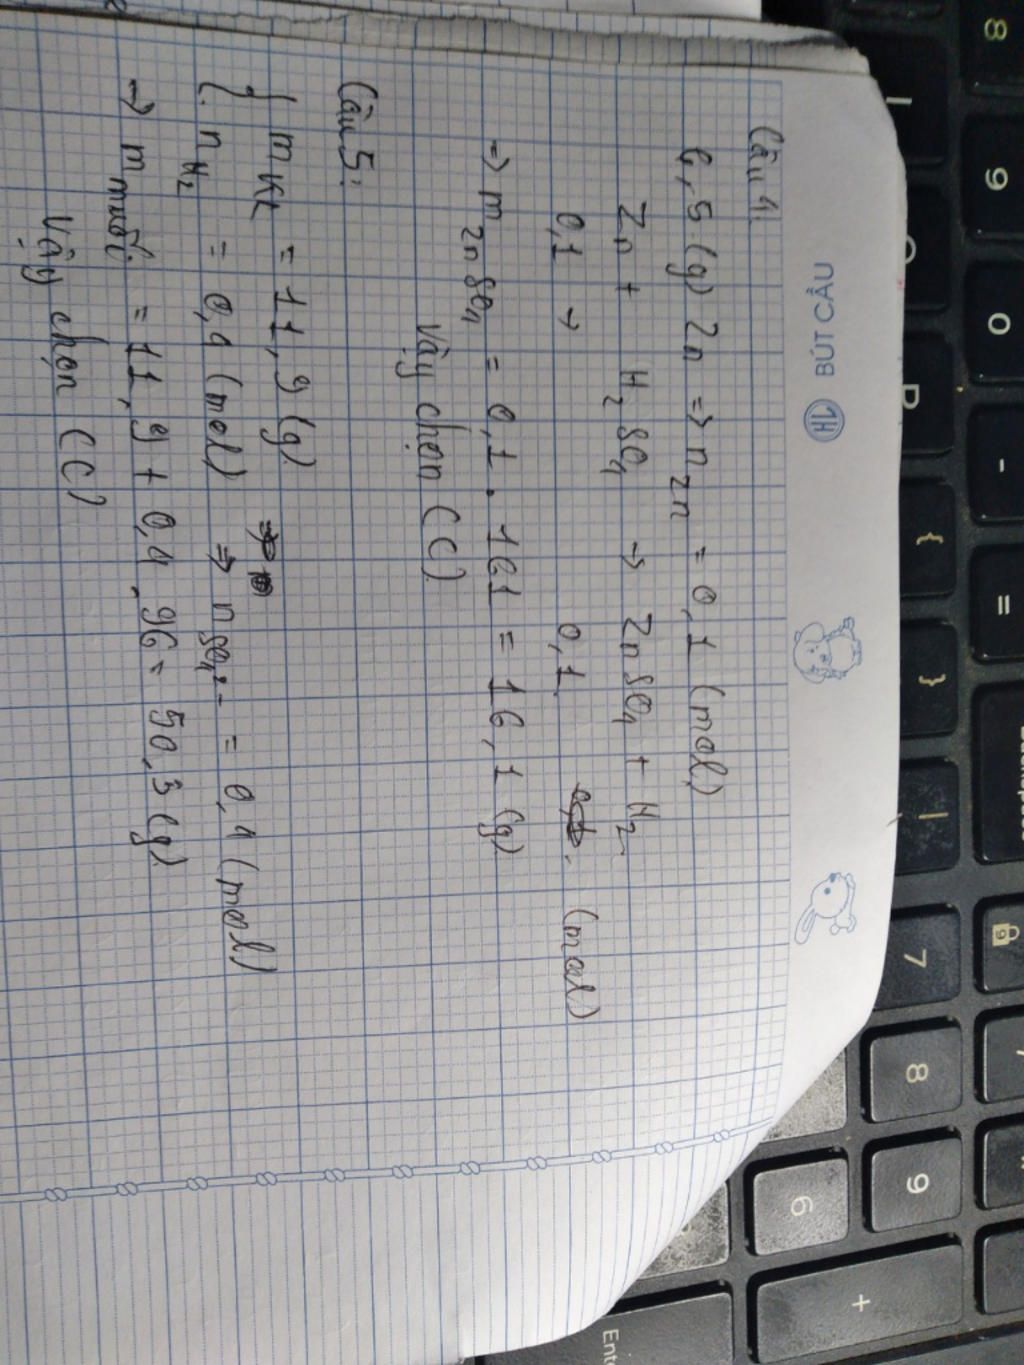 BÚT CẦU
Câu 4:
6,5 (g) Zn => nZn = 0,1 (mol)
Zn + H2SO4 → ZnSO4 + H2
0,1 → 0,1 (mol)
=> mZnSO4 = 0,1 . 161 = 16,1 (g)
Vậy chọn (C)
Câu 5:
{ mKL = 11,9 (g)
nH2 = 0,4 (mol) => nSO4²⁻ = 0,4 (mol)
→ mmuối = 11,9 + 0,4 . 96 = 50,3 (g)
Vậy chọn (C)
8
9
0
-
=
P
{
}
|
7
8
9
6
+
Ent